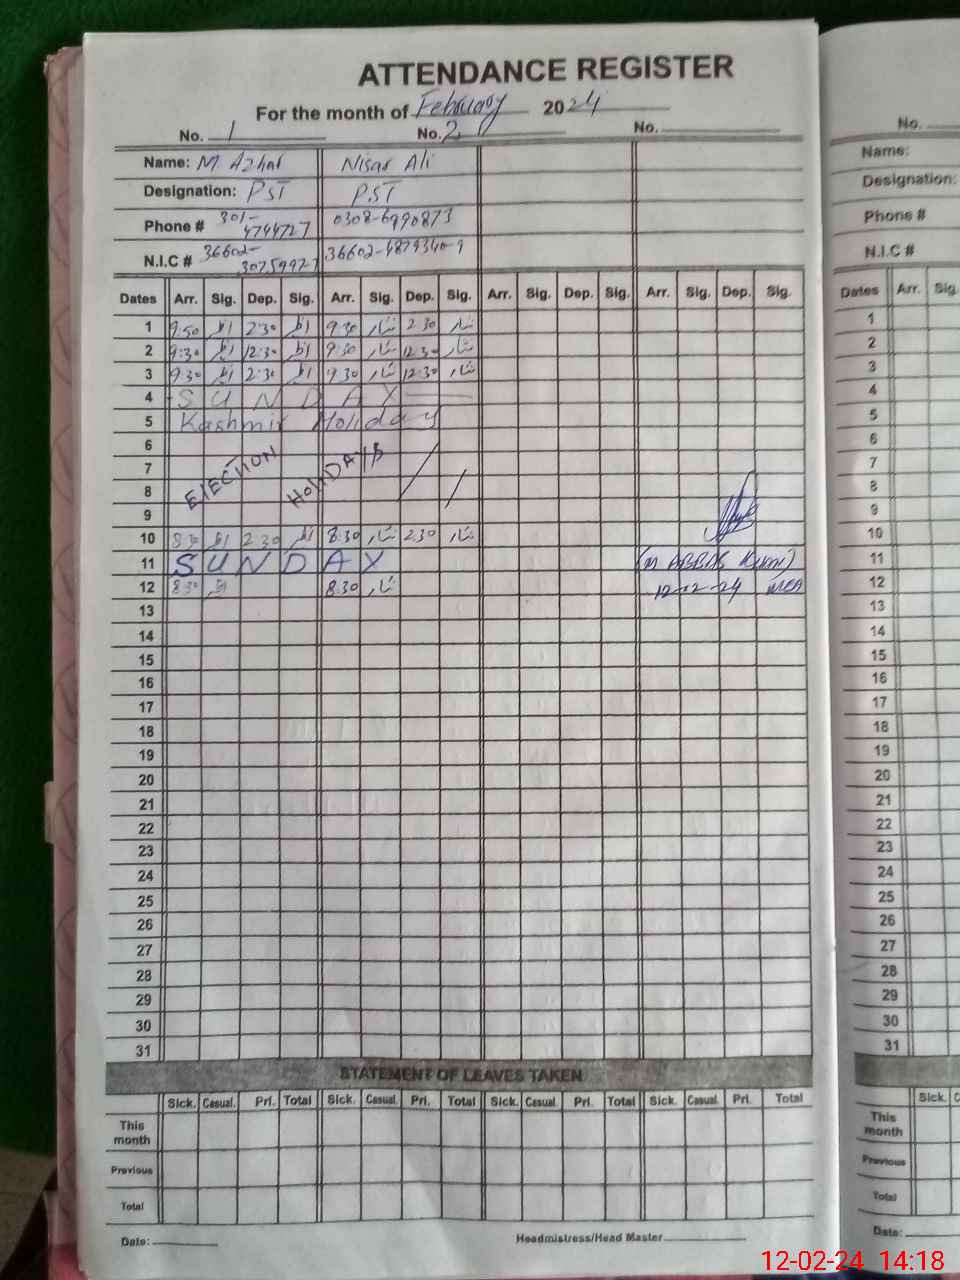 ATTENDANCE REGISTER
For the month of February 2024
No. 1 No. 2 No.
Name: M. Azhar Nisar Ali
Designation: PST P.ST
Phone # 301-4744727 0308-6990873
N.I.C # 36602- 36602-4879340-9
Dates Arr. Sig. Dep. Sig. Arr. Sig. Dep. Sig. Arr. Sig. Dep. Sig. Arr. Sig. Dep. Sig.
1 9:50 2:30 9:30 نثار 2:30 نثار
2 9:30 12:30 9:30 نثار 12:30 نثار
3 9:30 2:30 9:30 نثار 12:30 نثار
4 SUNDAY
5 Kashmir Holiday
6
7
8 ElECTION HoliDAYS
9
10 8:30 2:30 8:30 نثار 2:30 نثار
11 SUNDAY (M ABBAS
12 8:30 8:30 نثار 12-02-24 MEA
13
14
15
16
17
18
19
20
21
22
23
24
25
26
27
28
29
30
31
STATEMENT OF LEAVES TAKEN
Sick. Casual. Pri. Total Sick. Casual. Pri. Total Sick. Casual. Pri. Total Sick. Casual. Pri. Total
This month
Previous
Total
Date: Headmistress/Head Master
No.
Name:
Designation:
Phone #
N.I.C #
Dates Arr. Sig.
1
2
3
4
5
6
7
8
9
10
11
12
13
14
15
16
17
18
19
20
21
22
23
24
25
26
27
28
29
30
31
Sick.
This month
Previous
Total
Date:
12-02-24 14:18